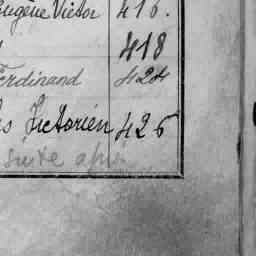 Eugène Victor 416.
418
Ferdinand 424
s Victorien 426
suite après